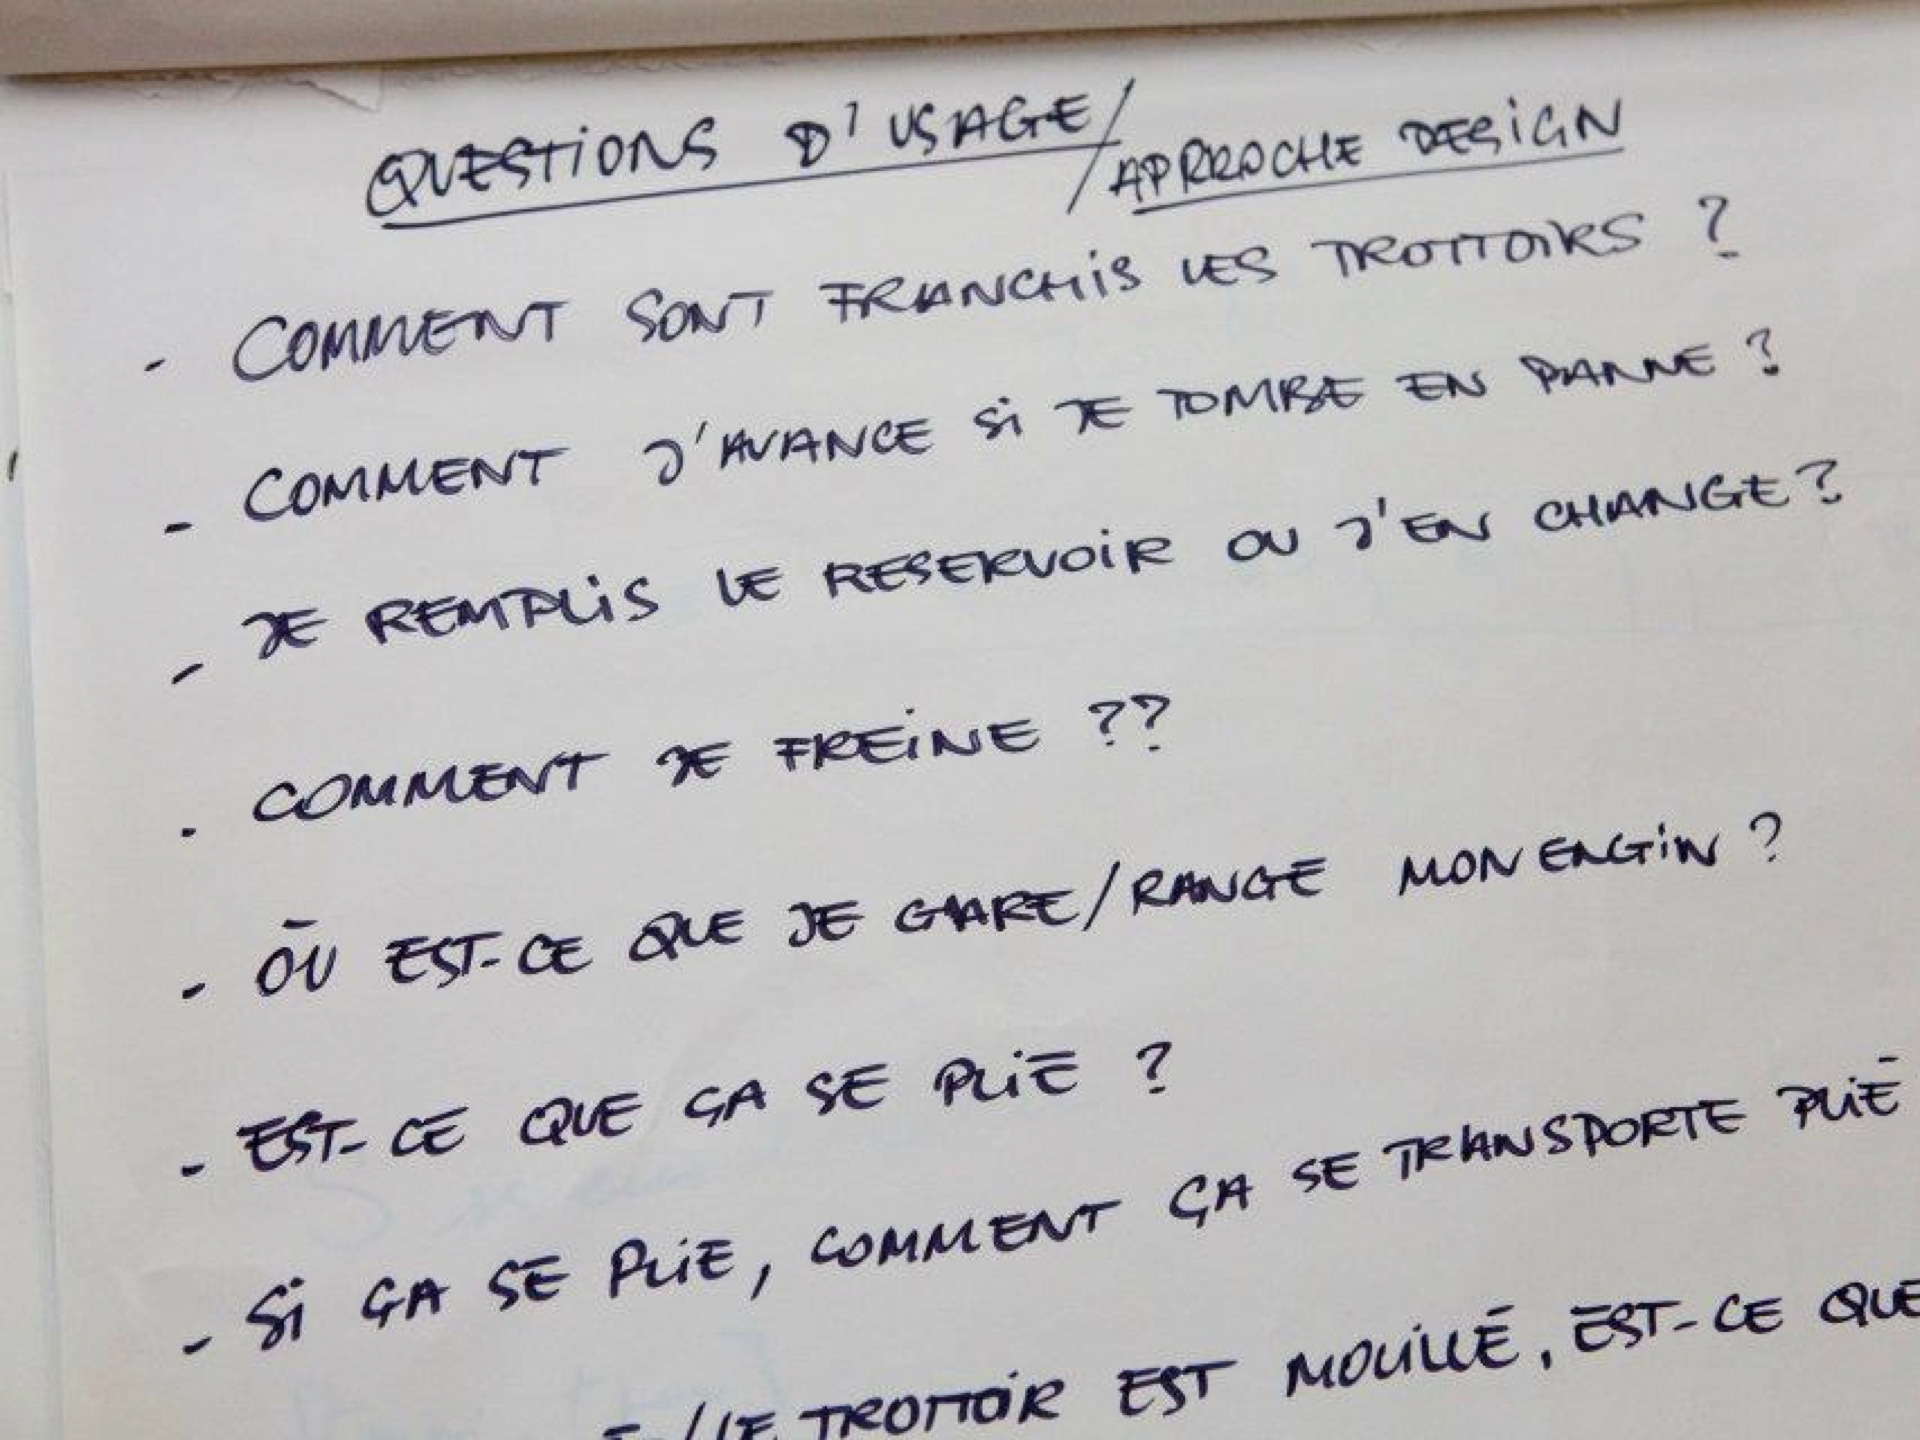 QUESTIONS D'USAGE/APPROCHE DESIGN
- COMMENT SONT FRANCHIS LES TROTTOIRS ?
- COMMENT J'AVANCE SI JE TOMBE EN PANNE ?
- JE REMPLIS LE RESERVOIR OU J'EN CHANGE ?
- COMMENT JE FREINE ??
- OÙ EST-CE QUE JE GARE/RANGE MON ENGIN ?
- EST-CE QUE ÇA SE PLIE ?
- SI ÇA SE PLIE, COMMENT ÇA SE TRANSPORTE PLIÉ
/LE TROTTOIR EST MOUILLÉ, EST-CE QUE